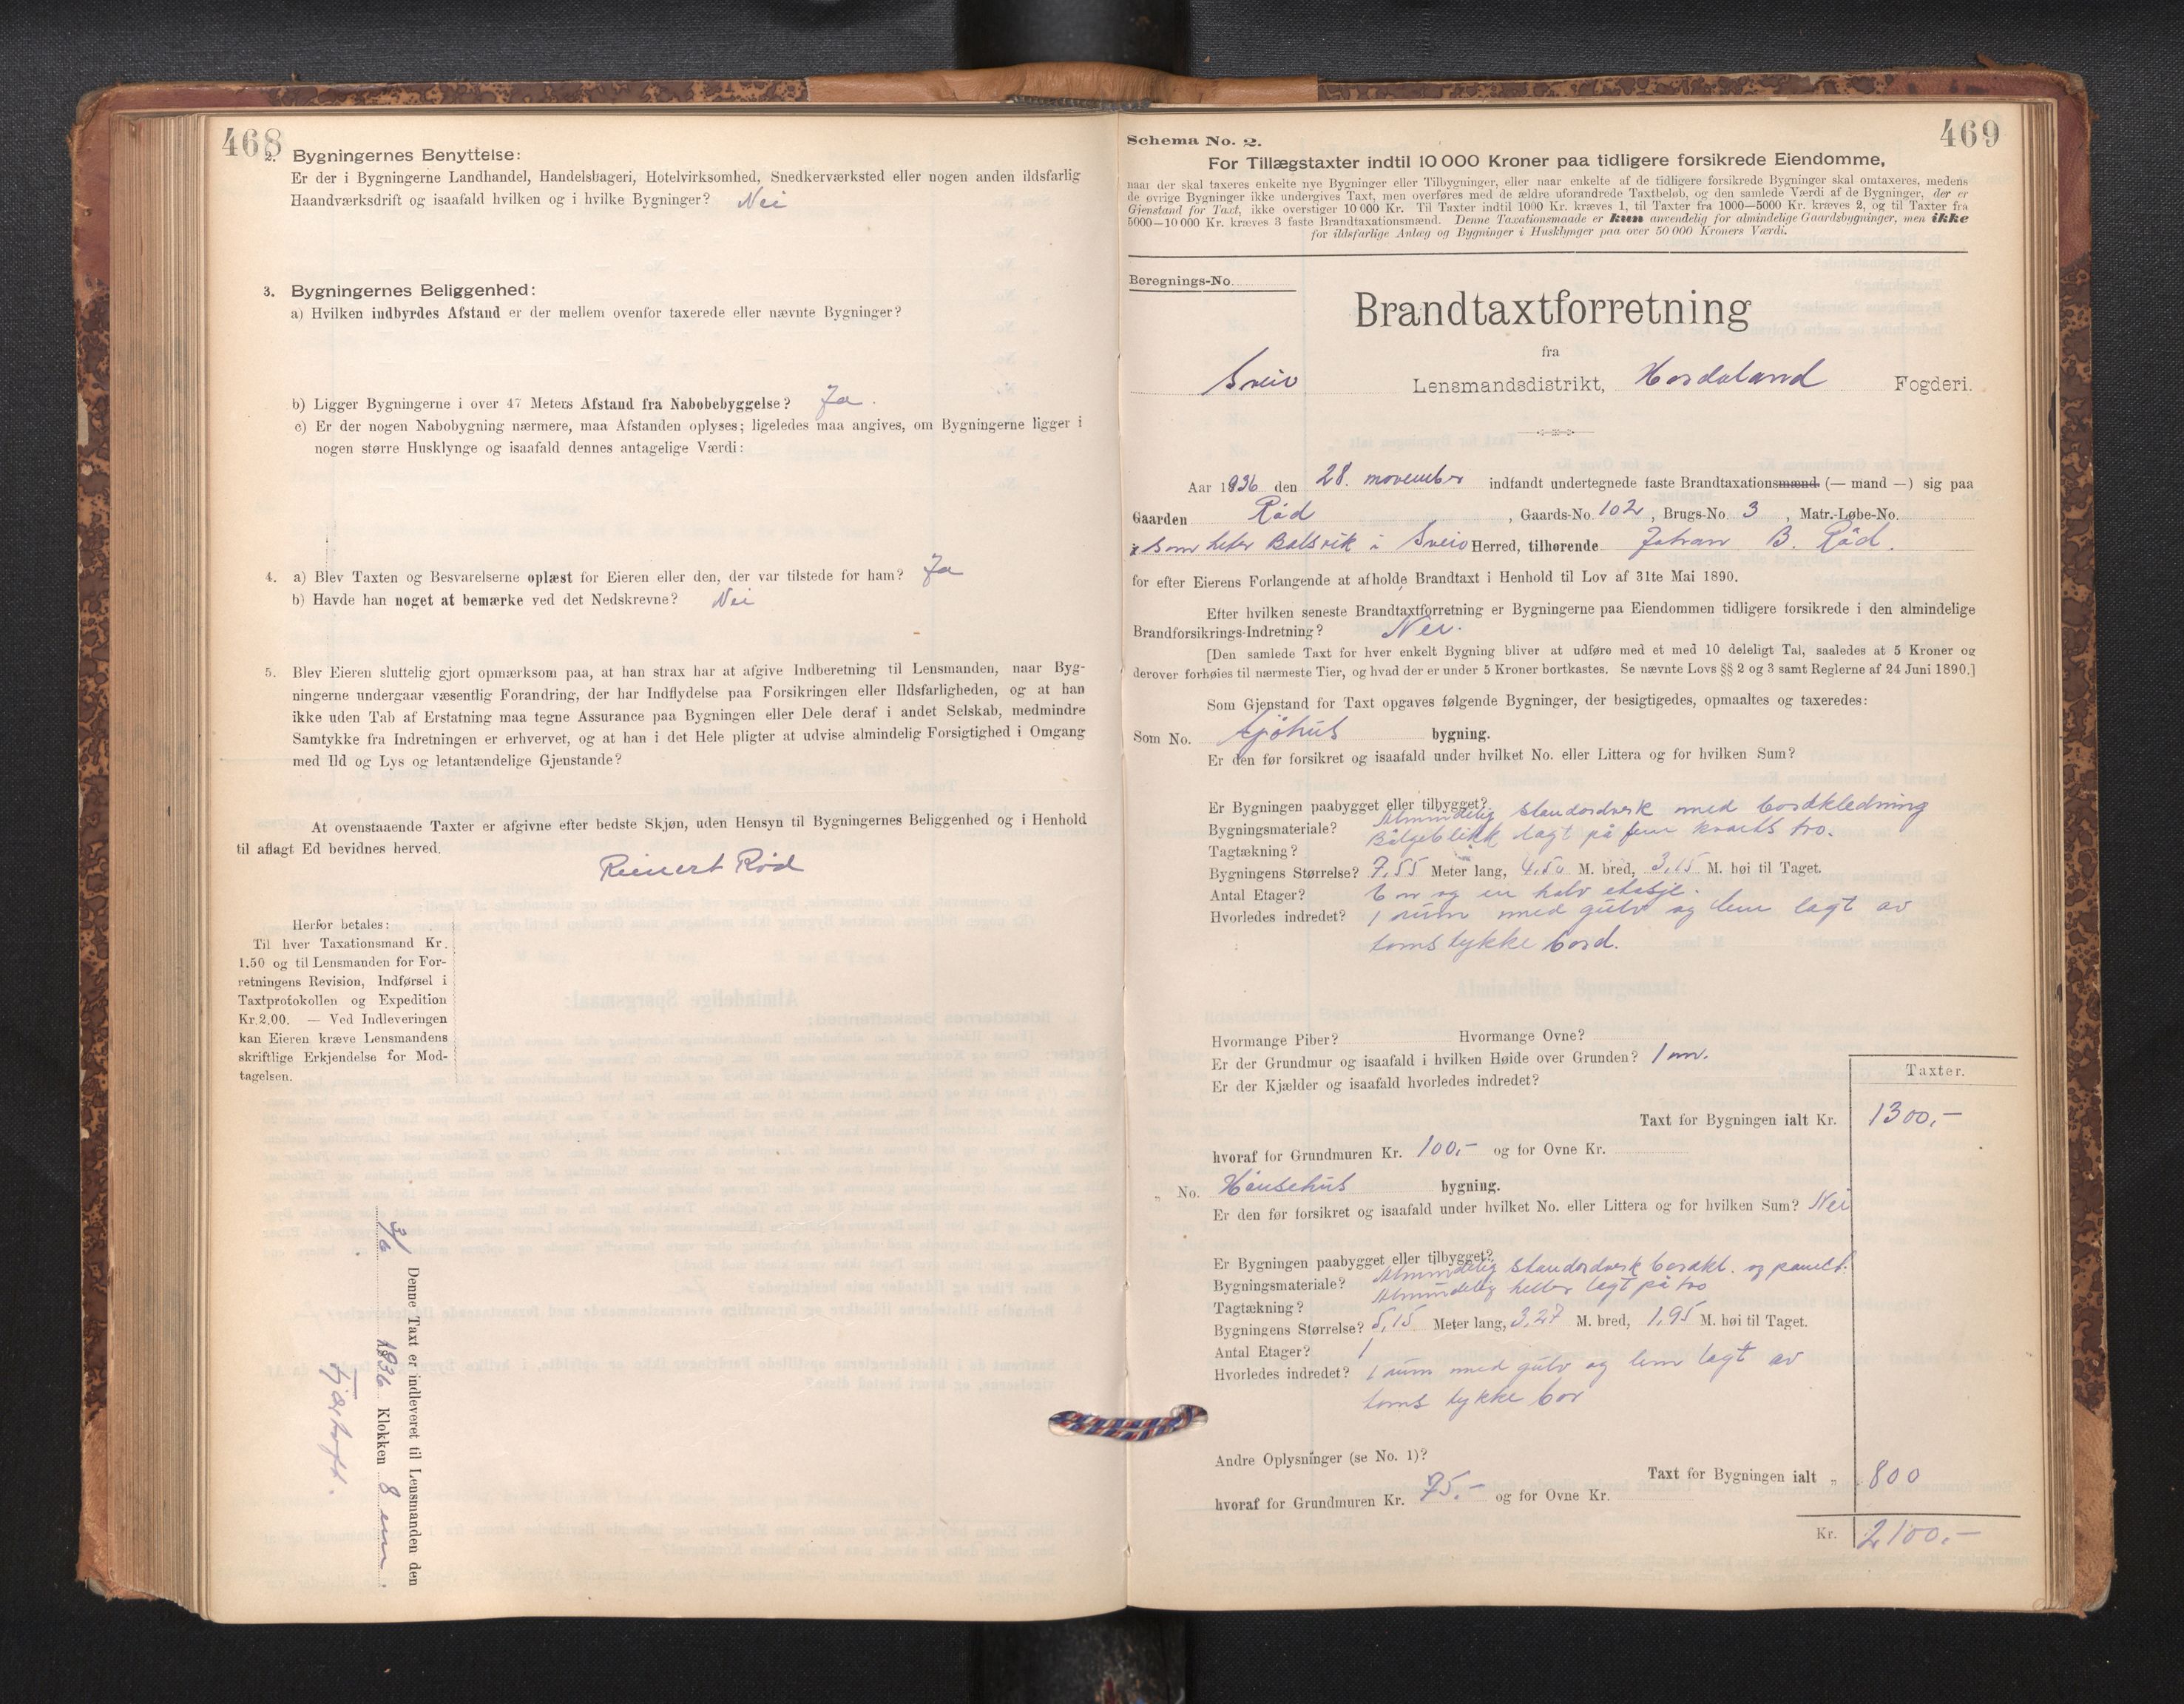 468
2. Bygningernes Benyttelse:
Er der i Bygningerne Landhandel, Handelsbageri, Hotelvirksomhed, Snedkerværksted eller nogen anden ildsfarlig
Haandværksdrift og isaafald hvilken og i hvilke Bygninger? Nei
3. Bygningernes Beliggenhed:
a) Hvilken indbyrdes Afstand er der mellem ovenfor taxerede eller nævnte Bygninger?
b) Ligger Bygningerne i over 47 Meters Afstand fra Nabobebyggelse? Ja.
c) Er der nogen Nabobygning nærmere, maa Afstanden oplyses; ligeledes maa angives, om Bygningerne ligger i
nogen større Husklynge og isaafald dennes antagelige Værdi:
4. a) Blev Taxten og Besvarelserne oplæst for Eieren eller den, der var tilstede for ham? Ja
b) Havde han noget at bemærke ved det Nedskrevne? Nei
5. Blev Eieren sluttelig gjort opmærksom paa, at han strax har at afgive Indberetning til Lensmanden, naar Byg-
ningerne undergaar væsentlig Forandring, der har Indflydelse paa Forsikringen eller Ildsfarligheden, og at han
ikke uden Tab af Erstatning maa tegne Assurance paa Bygningen eller Dele deraf i andet Selskab, medmindre
Samtykke fra Indretningen er erhvervet, og at han i det Hele pligter at udvise almindelig Forsigtighed i Omgang
med Ild og Lys og letantændelige Gjenstande?
At ovenstaaende Taxter er afgivne efter bedste Skjøn, uden Hensyn til Bygningernes Beliggenhed og i Henhold
til aflagt Ed bevidnes herved.
Reinert Rød
Herfor betales:
Til hver Taxationsmand Kr.
1.50 og til Lensmanden for For-
retningens Revision, Indførsel i
Taxtprotokollen og Expedition
Kr. 2.00. — Ved Indleveringen
kan Eieren kræve Lensmandens
skriftlige Erkjendelse for Mod-
tagelsen.
Denne Taxt er indleveret til Lensmanden den
3/6 1936 Klokken 8 em.
469
Schema No. 2.
For Tillægstaxter indtil 10 000 Kroner paa tidligere forsikrede Eiendomme,
naar der skal taxeres enkelte nye Bygninger eller Tilbygninger, eller naar enkelte af de tidligere forsikrede Bygninger skal omtaxeres, medens
de øvrige Bygninger ikke undergives Taxt, men overføres med de ældre uforandrede Taxtbeløb, og den samlede Værdi af de Bygninger, der er
Gjenstand for Taxt, ikke overstiger 10 000 Kr. Til Taxter indtil 1000 Kr. kræves 1, til Taxter fra 1000—5000 Kr. kræves 2, og til Taxter fra
5000—10 000 Kr. kræves 3 faste Brandtaxationsmænd. Denne Taxationsmaade er kun anvendelig for almindelige Gaardsbygninger, men ikke
for ildsfarlige Anlæg og Bygninger i Husklynger paa over 50 000 Kroners Værdi.
Beregnings-No.
Brandtaxtforretning
fra
Sveio Lensmandsdistrikt, Hordaland Fogderi.
Aar 1936 den 28. november indfandt undertegnede faste Brandtaxationsmænd (— mand —) sig paa
Gaarden Rød, Gaards-No. 102, Brugs-No. 3, Matr.-Løbe-No.
som heter Balsvik i Sveio Herred, tilhørende Johan B. Rød.
for efter Eierens Forlangende at afholde Brandtaxt i Henhold til Lov af 31te Mai 1890.
Efter hvilken seneste Brandtaxtforretning er Bygningerne paa Eiendommen tidligere forsikrede i den almindelige
Brandforsikrings-Indretning? Nei.
[Den samlede Taxt for hver enkelt Bygning bliver at udføre med et med 10 deleligt Tal, saaledes at 5 Kroner og
derover forhøies til nærmeste Tier, og hvad der er under 5 Kroner bortkastes. Se nævnte Lovs §§ 2 og 3 samt Reglerne af 24 Juni 1890.]
Som Gjenstand for Taxt opgaves følgende Bygninger, der besigtigedes, opmaaltes og taxeredes:
Som No. Sjøhus bygning.
Er den før forsikret og isaafald under hvilket No. eller Littera og for hvilken Sum?
Er Bygningen paabygget eller tilbygget?
Bygningsmateriale? Almindelig standardverk med bordkledning
Tagtækning? Bølgeblikk lagt på fem kvarts tro.
Bygningens Størrelse? 7,55 Meter lang, 4,50 M. bred, 3,15 M. høi til Taget.
Antal Etager? en og en halv etasje.
Hvorledes indredet? 1 rum med gulv og lem lagt av
toms tykke bord.
Hvormange Piber? Hvormange Ovne?
Er der Grundmur og isaafald i hvilken Høide over Grunden? 1 m.
Er der Kjælder og isaafald hvorledes indredet?
Taxter.
Taxt for Bygningen ialt Kr. 1300,-
hvoraf for Grundmuren Kr. 100,- og for Ovne Kr.
„ No. Hønsehus bygning.
Er den før forsikret og isaafald under hvilket No. eller Littera og for hvilken Sum? Nei
Er Bygningen paabygget eller tilbygget?
Bygningsmateriale? Almindelig standardverk bordkl. og panelt.
Tagtækning? Almindelig heller lagt på tro
Bygningens Størrelse? 5,15 Meter lang, 3,27 M. bred, 1,95 M. høi til Taget.
Antal Etager? 1
Hvorledes indredet? 1 rum med gulv og lem lagt av
toms tykke bor
Andre Oplysninger (se No. 1)?
Taxt for Bygningen ialt „ 800
hvoraf for Grundmuren Kr. 75.- og for Ovne Kr.
Kr. 2100,-